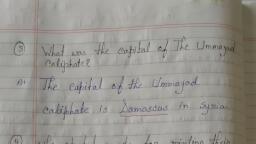 ③ What was the capital of The Ummayad
Caliphate?
A: The capital of the Ummayad
caliphate is Damascus in Syria